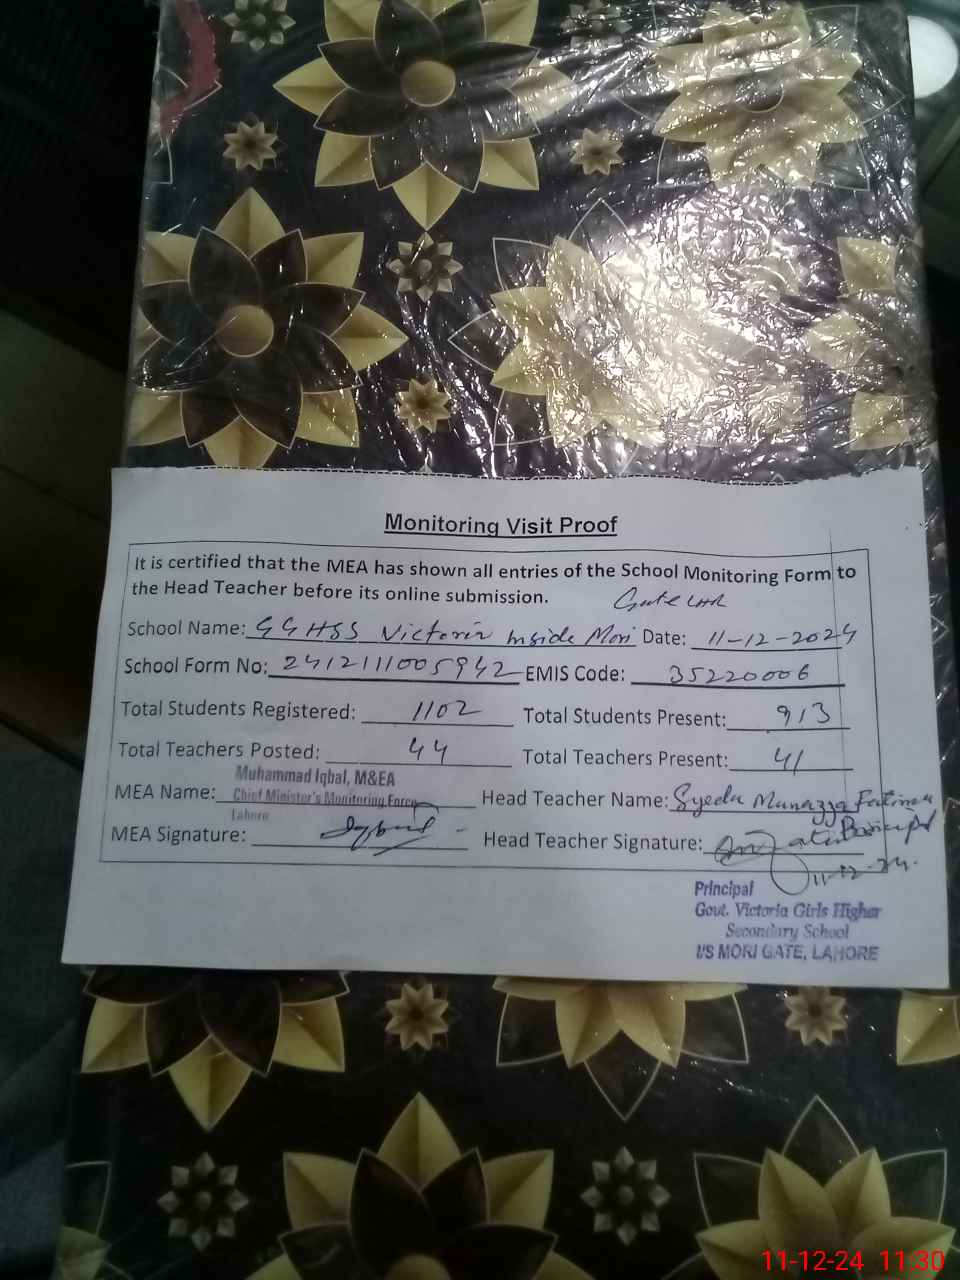 Monitoring Visit Proof
It is certified that the MEA has shown all entries of the School Monitoring Form to
the Head Teacher before its online submission.
Gate LHR
School Name: GGHSS Victoria Inside Mori Date: 11-12-2024
School Form No: 2412111005942 EMIS Code: 35220006
Total Students Registered: 1102 Total Students Present: 913
Total Teachers Posted: 44 Total Teachers Present: 41
Muhammad Iqbal, M&EA
MEA Name: Chief Minister's Monitoring Force Head Teacher Name: Syeda Munazza Fatima
Lahore
MEA Signature: Head Teacher Signature:
11-12-24.
Principal
Govt. Victoria Girls Higher
Secondary School
I/S MORI GATE, LAHORE
11-12-24 11:30